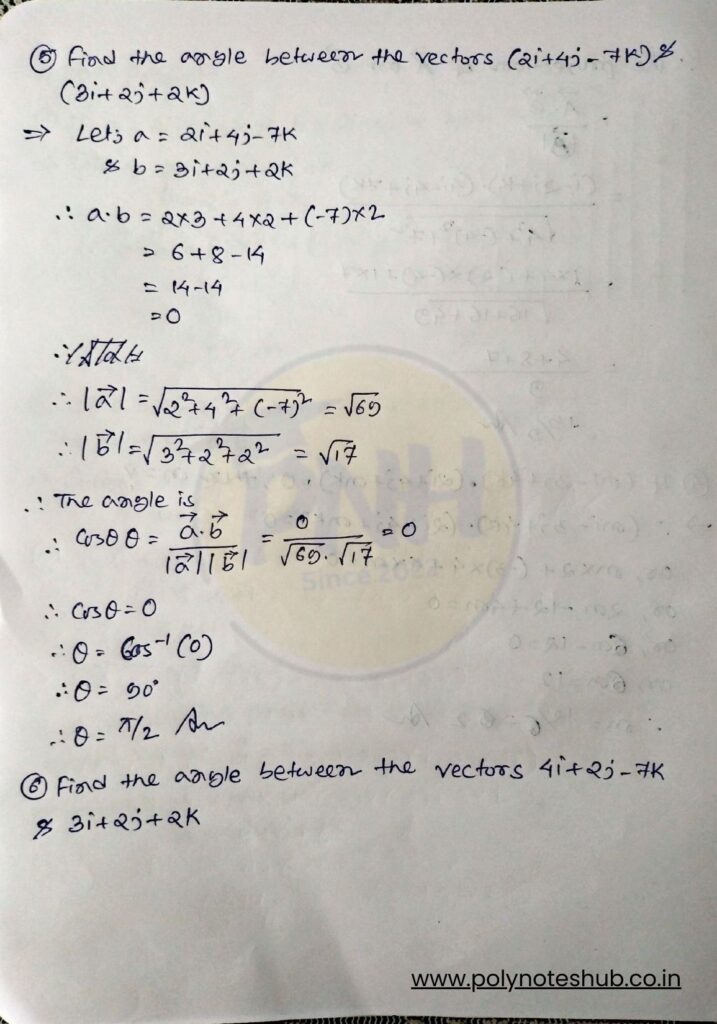 ⑤ Find the angle between the vectors (2i+4j-7K) &
(3i+2j+2K)
⇒ Let, a = 2i+4j-7K
& b = 3i+2j+2K
∴ a·b = 2×3+4×2+(-7)×2
= 6+8-14
= 14-14
=0
∴ |a⃗| = √2²+4²+(-7)² = √69
∴ |b⃗| = √3²+2²+2² = √17
∴ The angle is
∴ Cosθ θ = a⃗·b⃗ / |a⃗||b⃗| = 0 / √69·√17 = 0
∴ Cosθ=0
∴ θ = Cos⁻¹ (0)
∴ θ = 90°
∴ θ = π/2 Ans
⑥ Find the angle between the vectors 4i+2j-7K
& 3i+2j+2K
PNH
Since 2022
www.polynoteshub.co.in